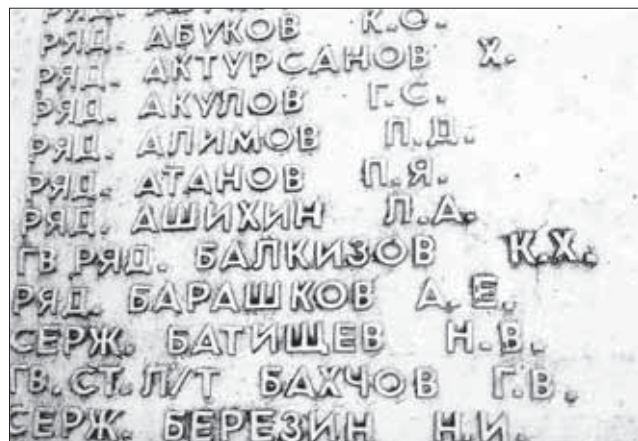 РЯД. АБУКОВ К.О.
РЯД. АКТУРСАНОВ Х.
РЯД. АКУЛОВ Г.С.
РЯД. АЛИМОВ П.Д.
РЯД. АТАНОВ П.Я.
РЯД. АШИХИН Л.А.
ГВ РЯД. БАЛКИЗОВ К.Х.
РЯД. БАРАШКОВ А.Е.
СЕРЖ. БАТИЩЕВ Н.В.
ГВ.СТ.Л/Т БАХЧОВ Г.В.
СЕРЖ. БЕРЕЗИН Н.И.